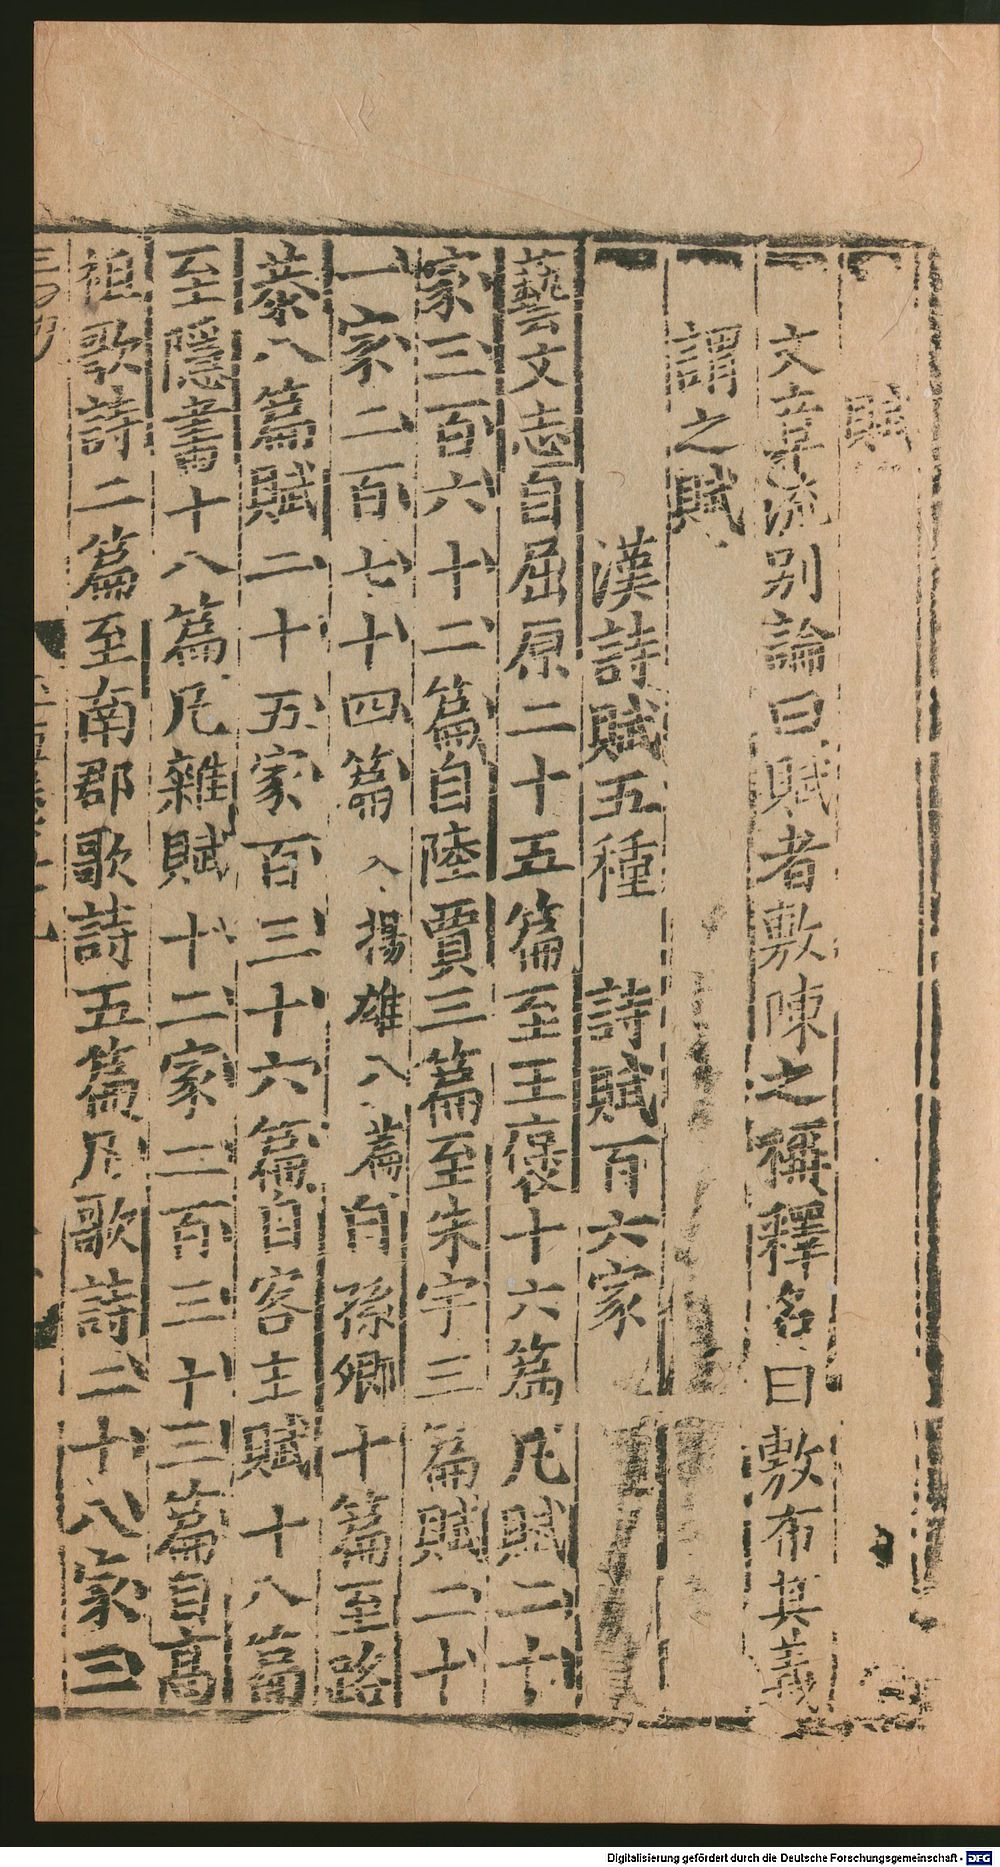 賦
文章流別論曰賦者敷陳之稱釋名曰敷布其義
謂之賦
漢詩賦五種 詩賦百六家
藝文志自屈原二十五篇至王褒十六篇凡賦二十
家三百六十二篇自陸賈三篇至朱宇三篇賦二十
一家二百七十四篇 入揚雄八篇 自孫卿十篇至路
恭八篇賦二十五家百三十六篇自客主賦十八篇
至隱書十八篇凡雜賦十二家二百三十三篇自高
祖歌詩二篇至南郡歌詩五篇凡歌詩二十八家三
Digitalisierung gefördert durch die Deutsche Forschungsgemeinschaft - DFG